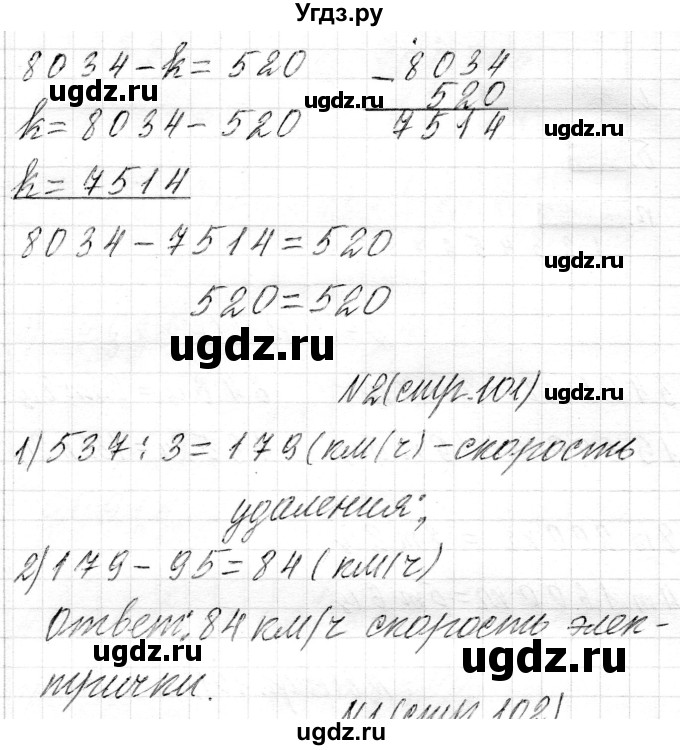 Угдз.ру
8034-k=520
8034
- 520
7514
ugdz.ru
ugdz.ru
ugdz.ru
k=8034-520
k=7514
8034-7514=520
ugdz.ru
520=520
ugdz.ru
N2(стр.101)
ugdz.ru
1) 537:3=179(км/ч)-скорость
удаления;
2) 179-95=84(км/ч)
Ответ: 84 км/ч скорость элек-
ugdz.ru
ugdz.ru
трички.
N1(стр.102)
ugdz.ru